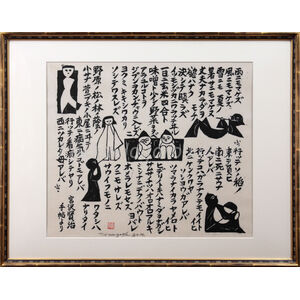 雨ニモマケズ
風ニモマケズ
雪ニモ夏ノ
暑サニモマケヌ
丈夫ナカラダヲモチ
慾ハナク
決シテ瞋ラズ
イツモシヅカニワラッテヰル
一日ニ玄米四合ト
味噌ト少シノ野菜ヲタベ
アラユルコトヲ
ヨクミキキシワカリ
ソシテワスレズ
野原ノ松ノ林ノ蔭ノ
小サナ萱ブキノ小屋ニヰテ
東ニ病気ノコドモアレバ
行ッテ看病シテヤリ
西ニツカレタ母アレバ
行ッテソノ稲ノ
束ヲ負ヒ
南ニ死ニサウナ
人アレバ
行ッテコハガラナクテモイイトイヒ
ツマラナイカラヤメロトイヒ
ヒデリノトキハナミダヲナガシ
サムサノナツハオロオロアルキ
ミンナニデクノボートヨバレ
ホメラレモセズ
クニモサレズ
サウイフモノニ
ワタシハ
ナリタイ
宮沢賢治
手帖より